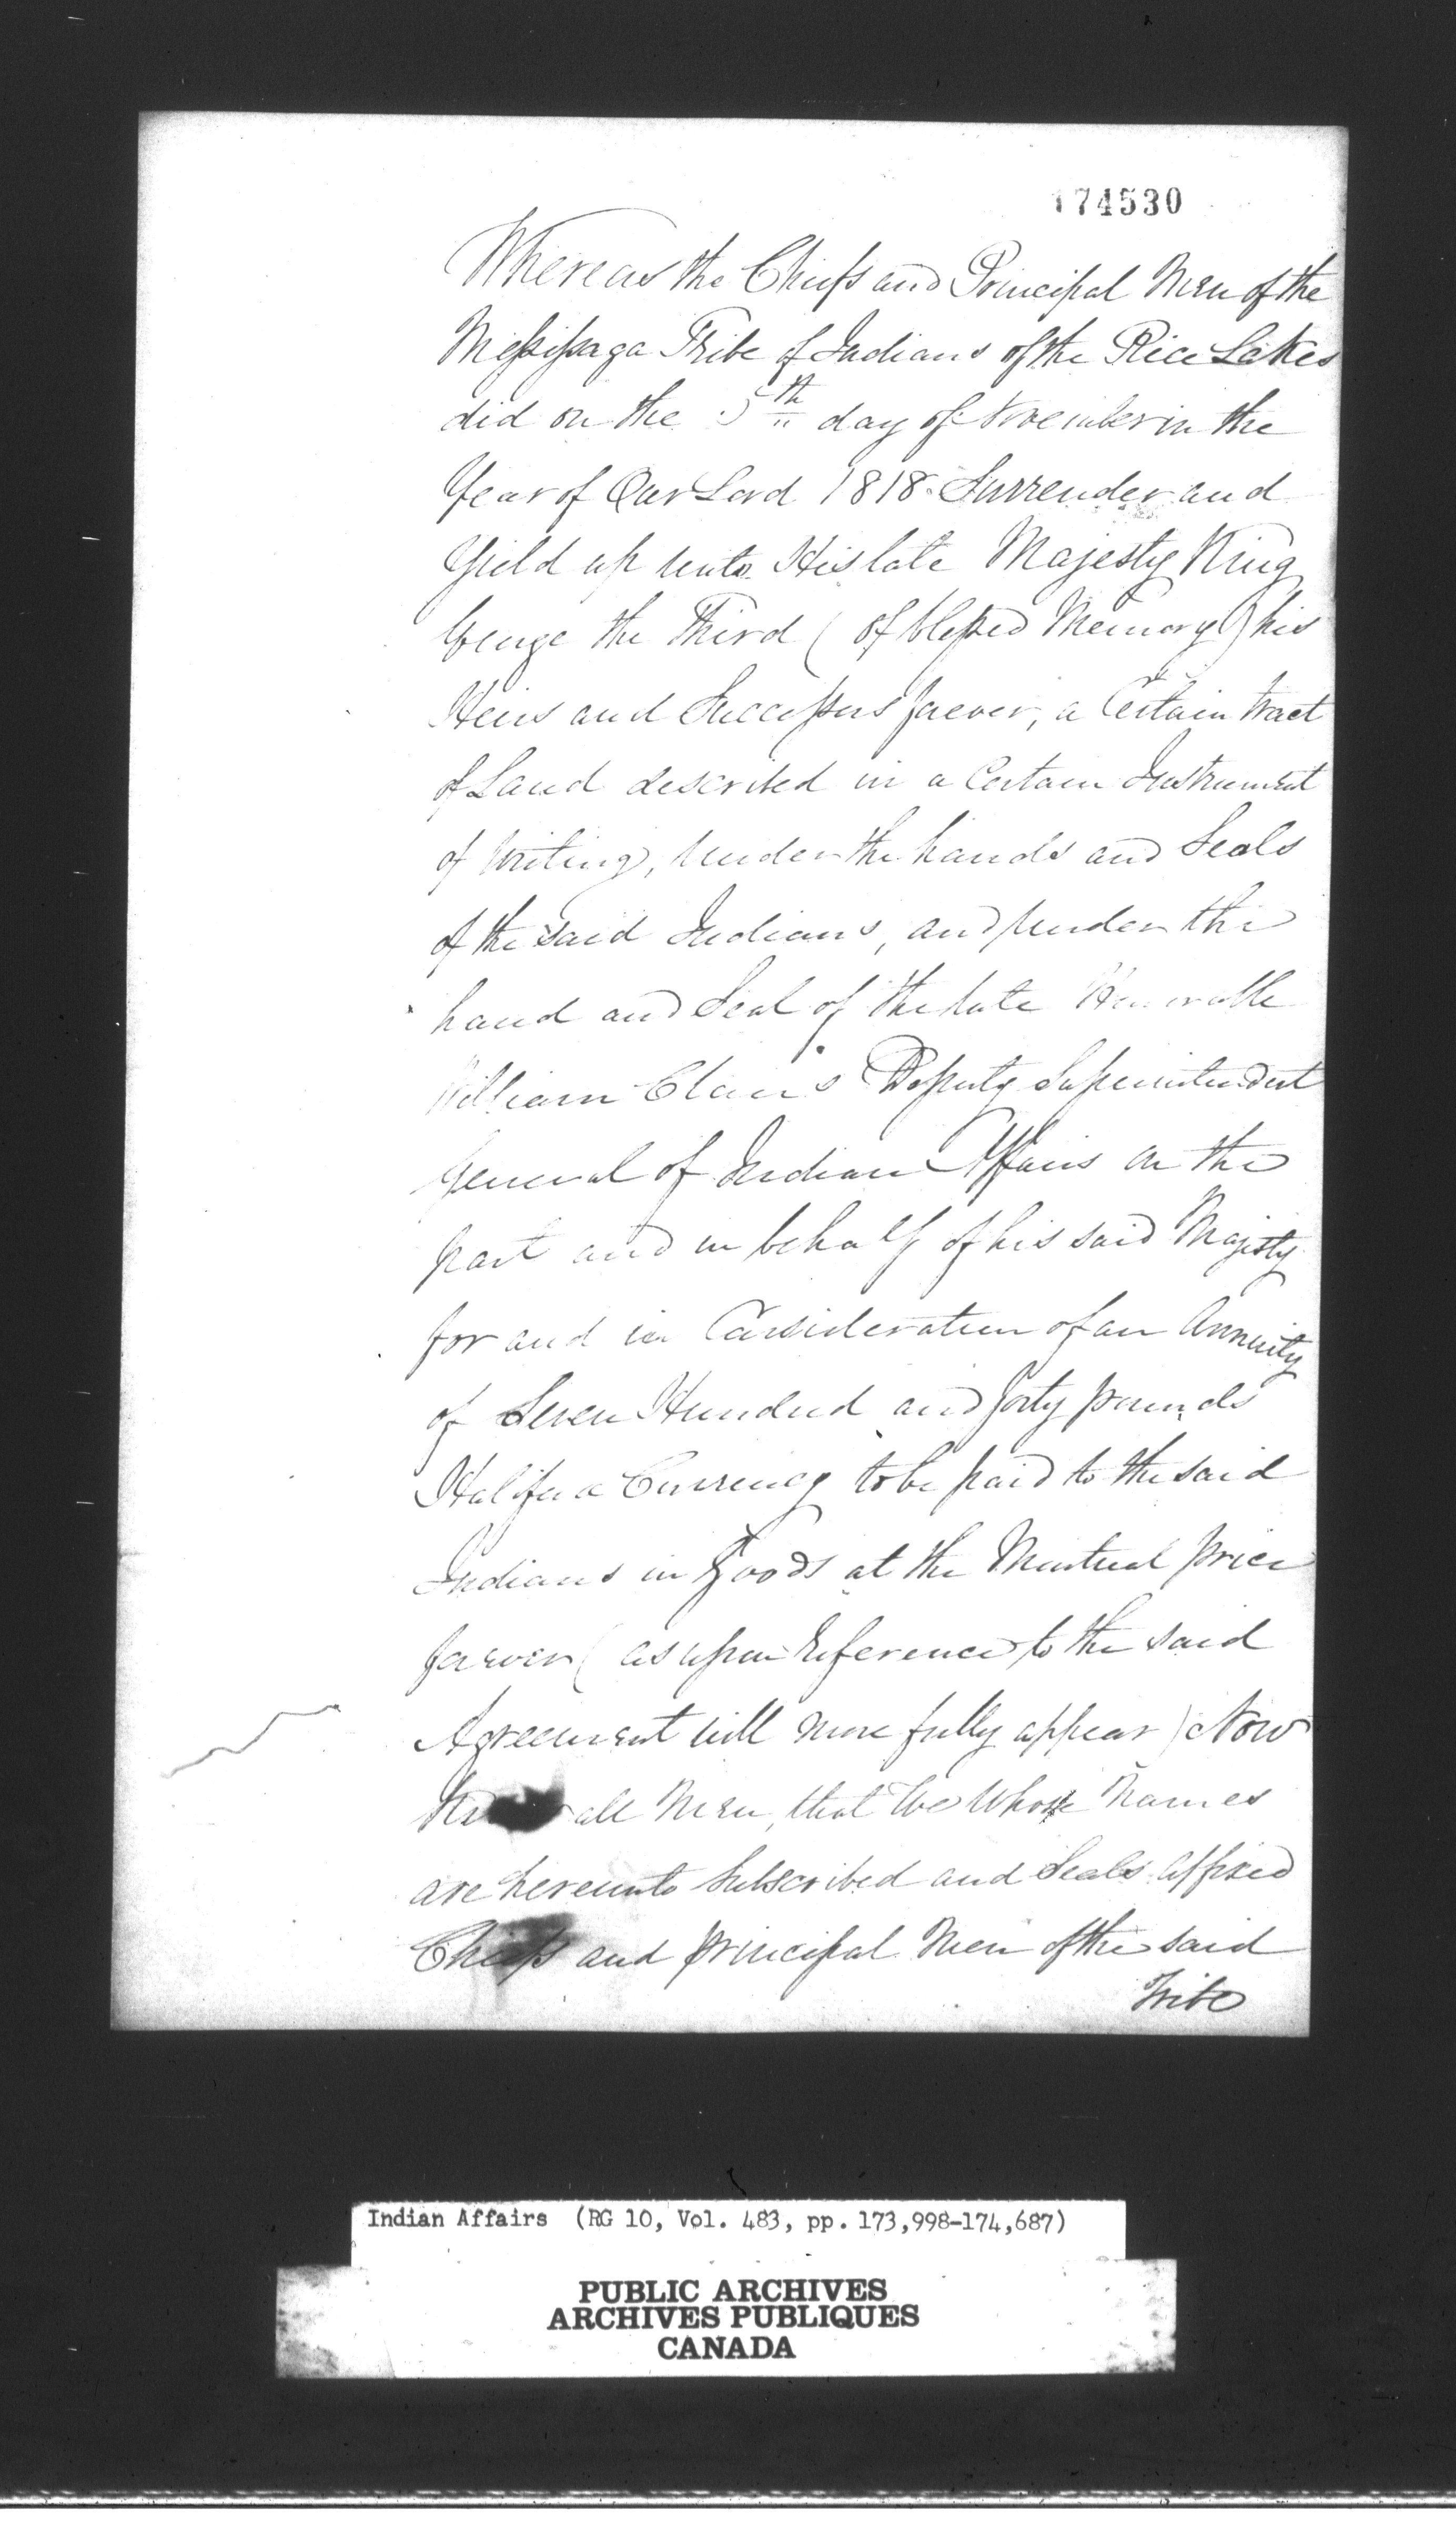 174530
Whereas the Chiefs and Principal Men of the
Mississaga Tribe of Indians of the Rice Lakes
did on the 5th day of November in the
Year of Our Lord 1818. Surrender and
Yield up unto His late Majesty King
George the Third ( of blessed Memory ) his
Heirs and Successors forever, a Certain tract
of Land described in a Certain Instrument
of Writing, under the hands and Seals
of the said Indians, and under the
hand and Seal of the late Honorable
William Claus Deputy Superintendent
General of Indian Affairs on the
part and in behalf of his said Majesty
for and in Consideration of an Annuity
of Seven Hundred and forty pounds
Halifax Currency to be paid to the said
Indians in Goods at the Montreal price
forever ( as upon reference to the said
Agreement will more fully appear ) Now
all Men, that We Whose Names
are hereunto Subscribed and Seals affixed
Chiefs and principal Men of the said
Tribe
Indian Affairs (RG 10, Vol. 483, pp. 173,998-174,687)
PUBLIC ARCHIVES
ARCHIVES PUBLIQUES
CANADA